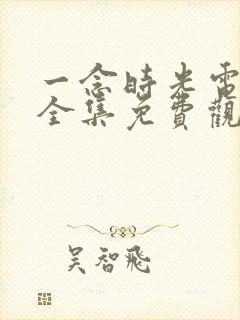 一念時光電
全集免費觀
吴智飛